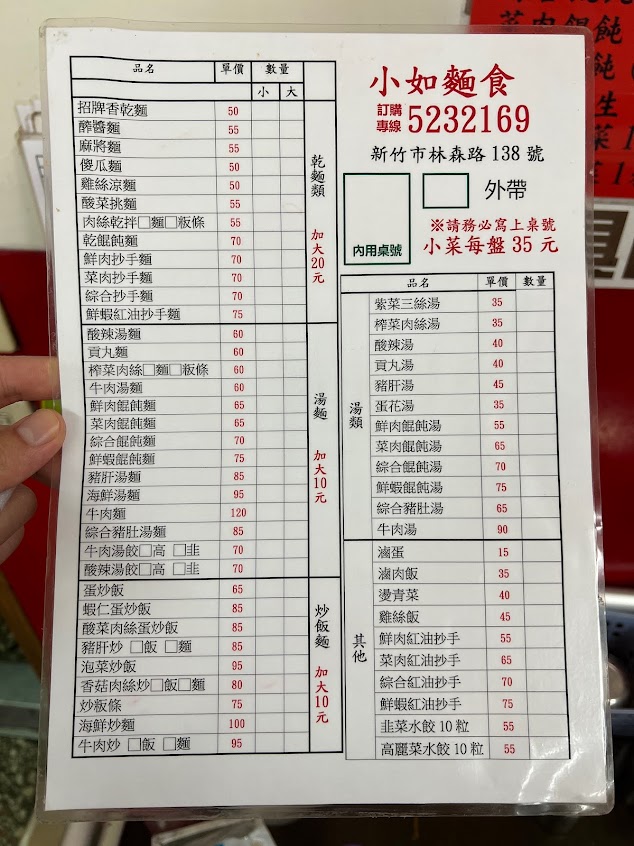 小如麵食
訂購專線 5232169
新竹市林森路 138 號
內用桌號
外帶
※請務必寫上桌號
小菜每盤 35 元
品名 單價 數量
小 大
乾麵類 加大20元
招牌香乾麵 50
醡醬麵 55
麻將麵 55
傻瓜麵 50
雞絲涼麵 50
酸菜挑麵 55
肉絲乾拌□麵□粄條 55
乾餛飩麵 70
鮮肉抄手麵 70
菜肉抄手麵 70
綜合抄手麵 70
鮮蝦紅油抄手麵 75
湯麵 加大10元
酸辣湯麵 60
貢丸麵 60
榨菜肉絲□麵□粄條 60
牛肉湯麵 60
鮮肉餛飩麵 65
菜肉餛飩麵 65
綜合餛飩麵 70
鮮蝦餛飩麵 75
豬肝湯麵 85
海鮮湯麵 95
牛肉麵 120
綜合豬肚湯麵 85
牛肉湯餃□高 □韭 70
酸辣湯餃□高 □韭 70
炒飯麵 加大10元
蛋炒飯 65
蝦仁蛋炒飯 85
酸菜肉絲蛋炒飯 85
豬肝炒 □飯 □麵 85
泡菜炒飯 95
香菇肉絲炒□飯□麵 80
炒粄條 75
海鮮炒麵 100
牛肉炒 □飯 □麵 95
品名 單價 數量
湯類
紫菜三絲湯 35
榨菜肉絲湯 35
酸辣湯 40
貢丸湯 40
豬肝湯 45
蛋花湯 35
鮮肉餛飩湯 55
菜肉餛飩湯 65
綜合餛飩湯 70
鮮蝦餛飩湯 75
綜合豬湯 65
牛肉湯 90
其他
滷蛋 15
滷肉飯 35
燙青菜 40
雞絲飯 45
鮮肉紅油抄手 55
菜肉紅油抄手 65
綜合紅油抄手 70
鮮蝦紅油抄手 75
韭菜水餃 10 粒 55
高麗菜水餃 10 粒 55
菜肉餛飩